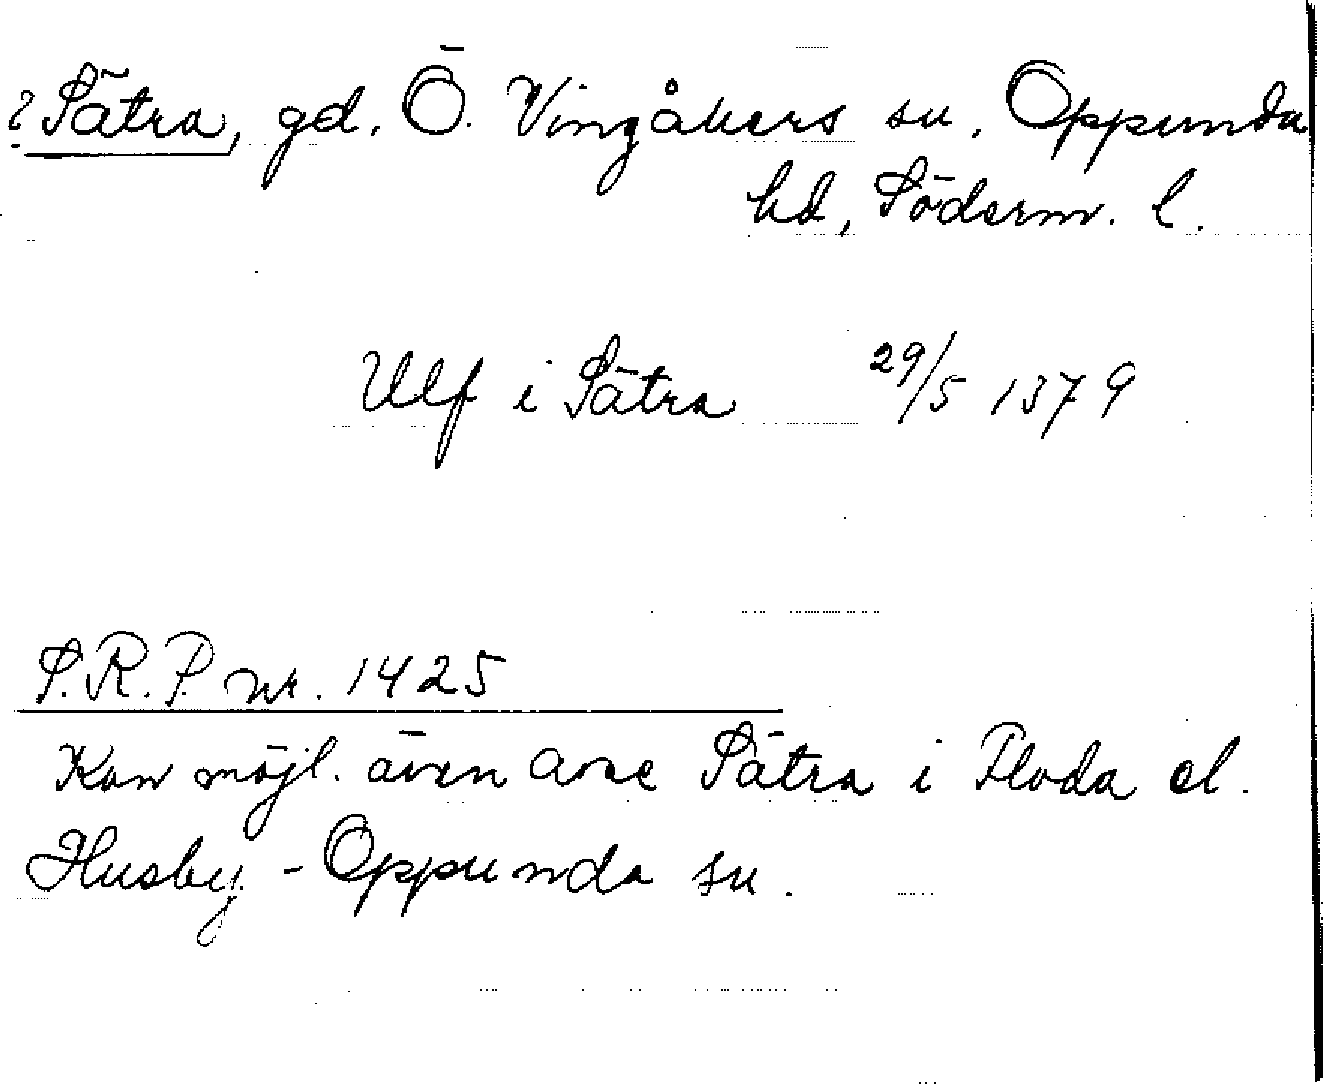 ? Sätra, gd, Ö. Vingåkers sn, Oppunda
hd, Söderm. l.
Ulf i Sätra 29/5 1379
S.R.P. nr. 1425
Kan möjl. även avse Sätra i Floda el.
Husby-Oppunda sn.